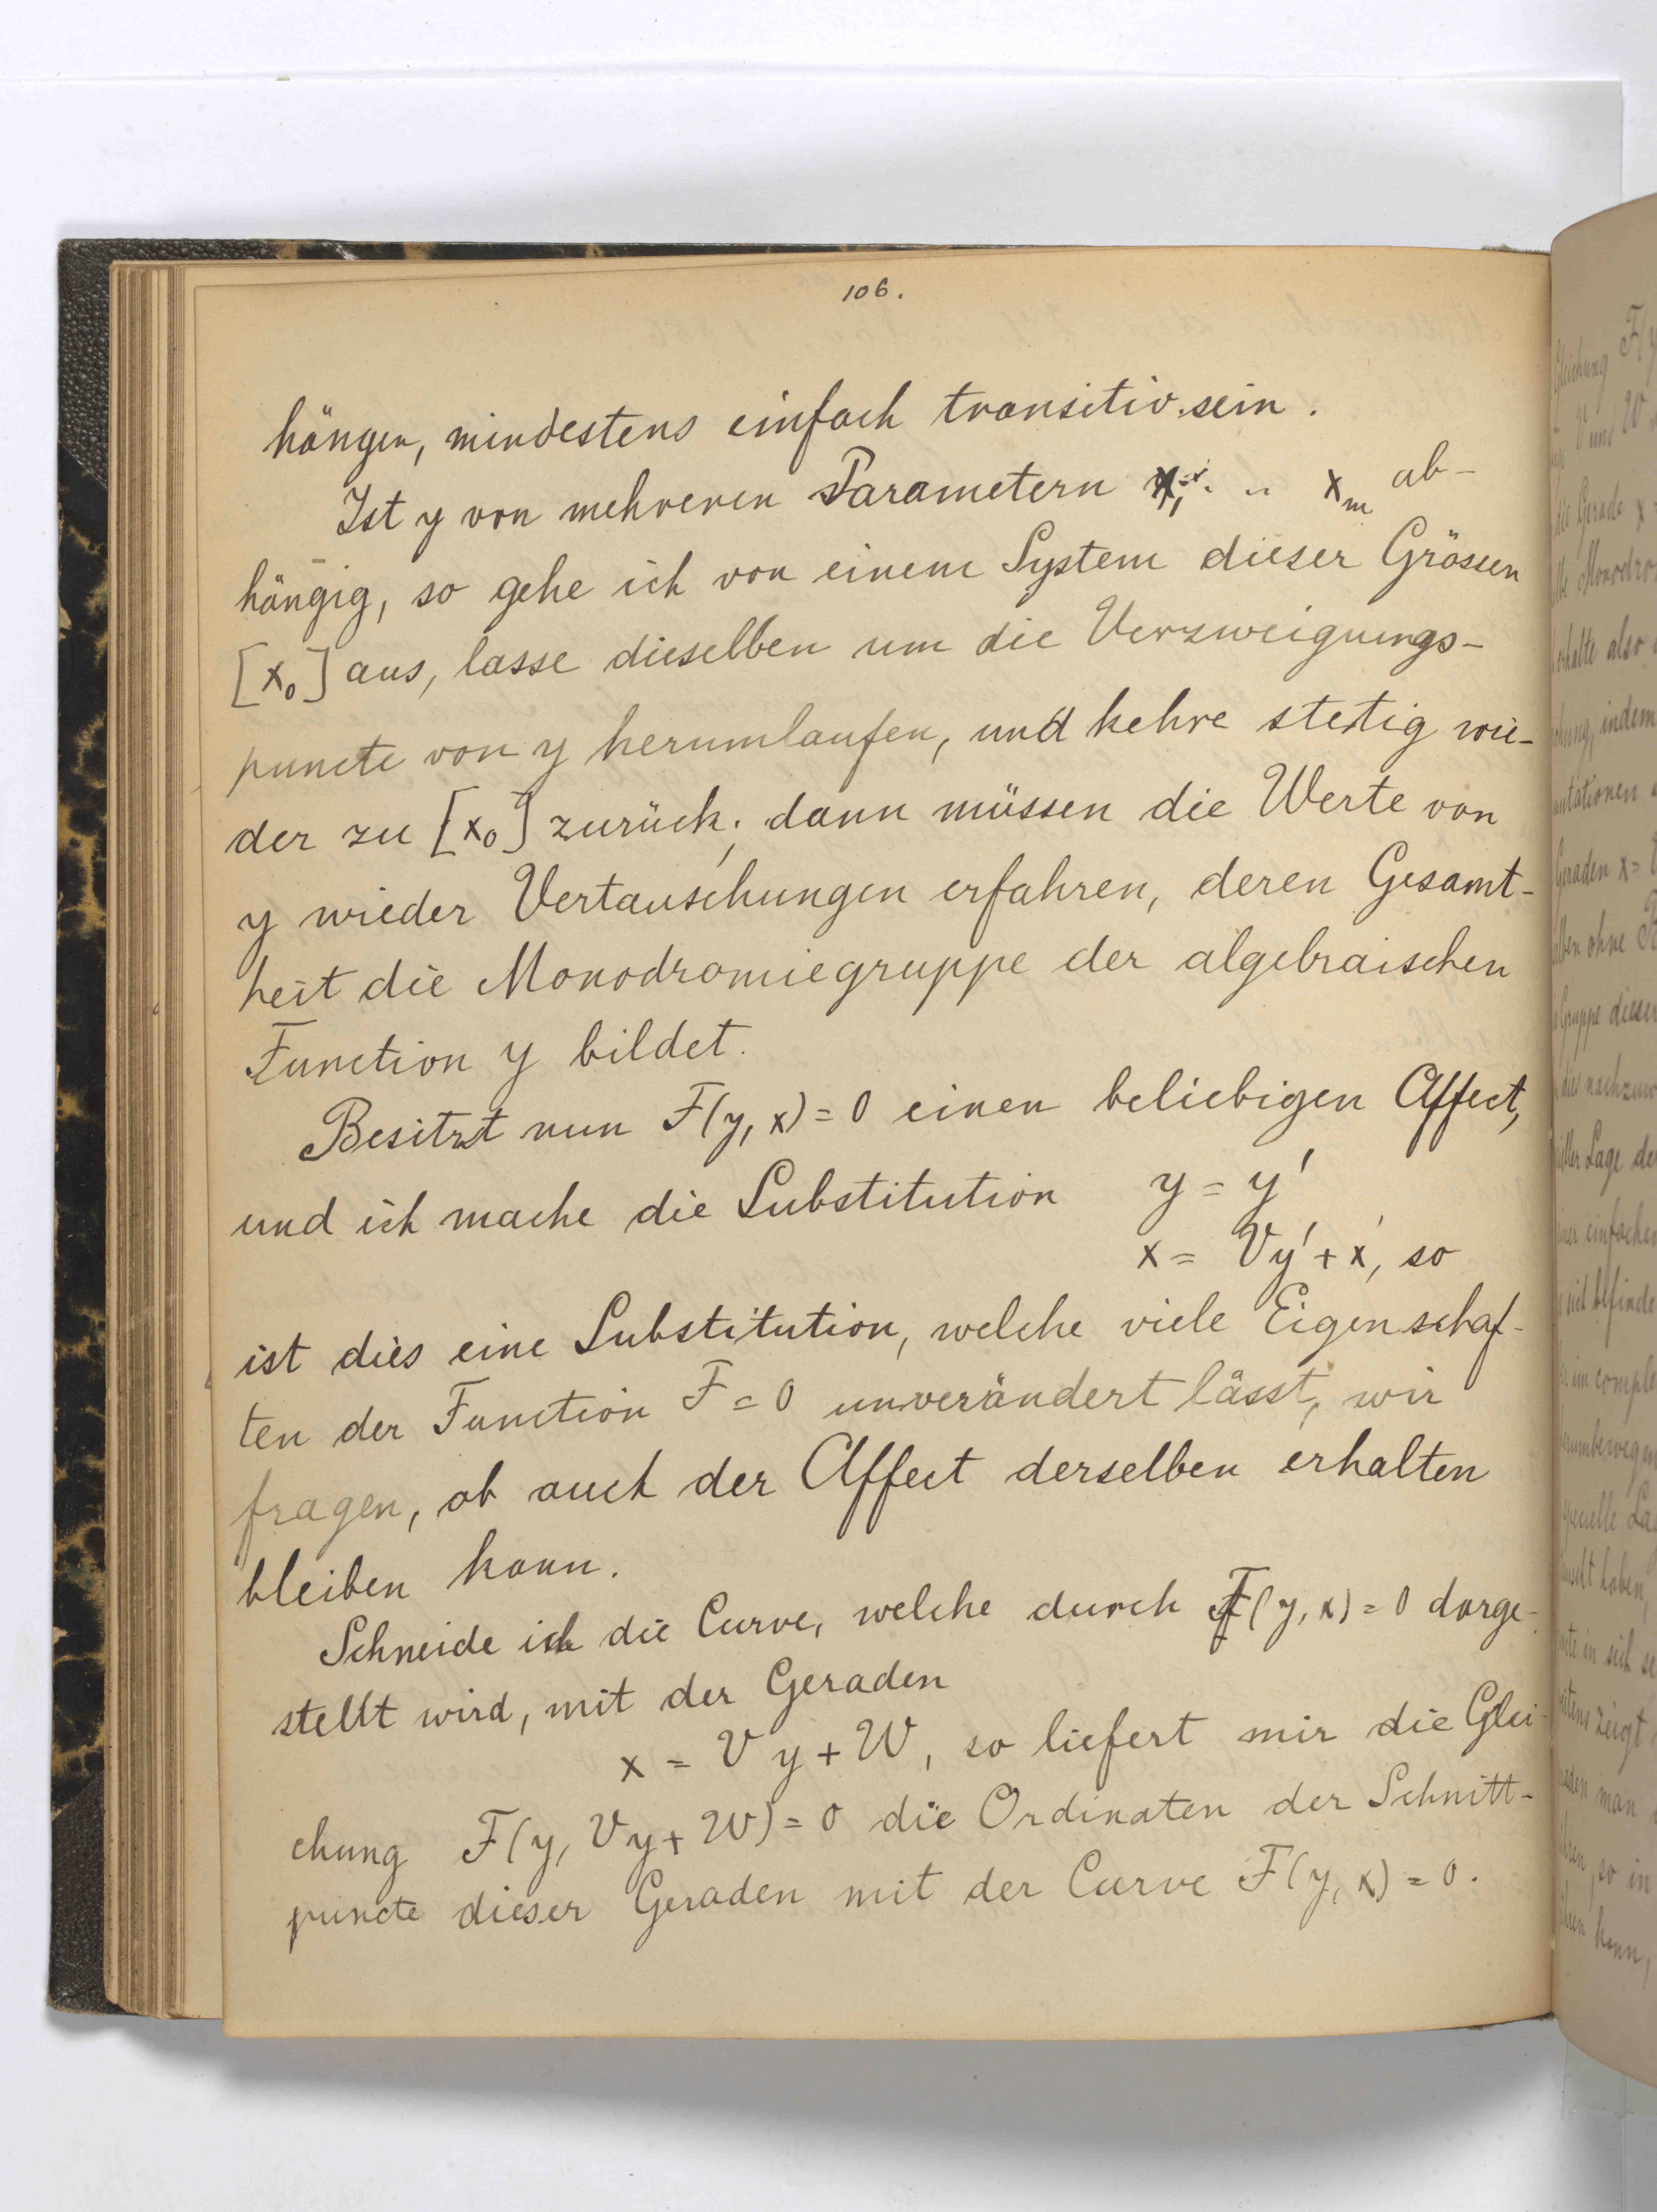 106.
hängen, mindestens einfach transitiv sein.
Ist y von mehreren Parametern x₁ . .. xₘ ab-
hängig, so gehe ich von einem System dieser Grössen
[x₀] aus, lasse dieselben um die Verzweigungs-
puncte von y herumlaufen, und kehre stetig wie-
der zu [x₀] zurück; dann müssen die Werte von
y wieder Vertauschungen erfahren, deren Gesamt-
heit die Monodromiegruppe der algebraischen
Function y bildet.
Besitzt nun F(y, x) = 0 einen beliebigen Affect,
und ich mache die Substitution y = y'
x = Vy' + x', so
ist dies eine Substitution, welche viele Eigenschaf-
ten der Function F = 0 unverändert lässt, wir
fragen, ob auch der Affect derselben erhalten
bleiben kann.
Schneide ich die Curve, welche durch F(y, x) = 0 darge-
stellt wird, mit der Geraden
x = Vy + W, so liefert mir die Glei-
chung F(y, Vy + W) = 0 die Ordinaten der Schnitt-
puncte dieser Geraden mit der Curve F(y, x) = 0.